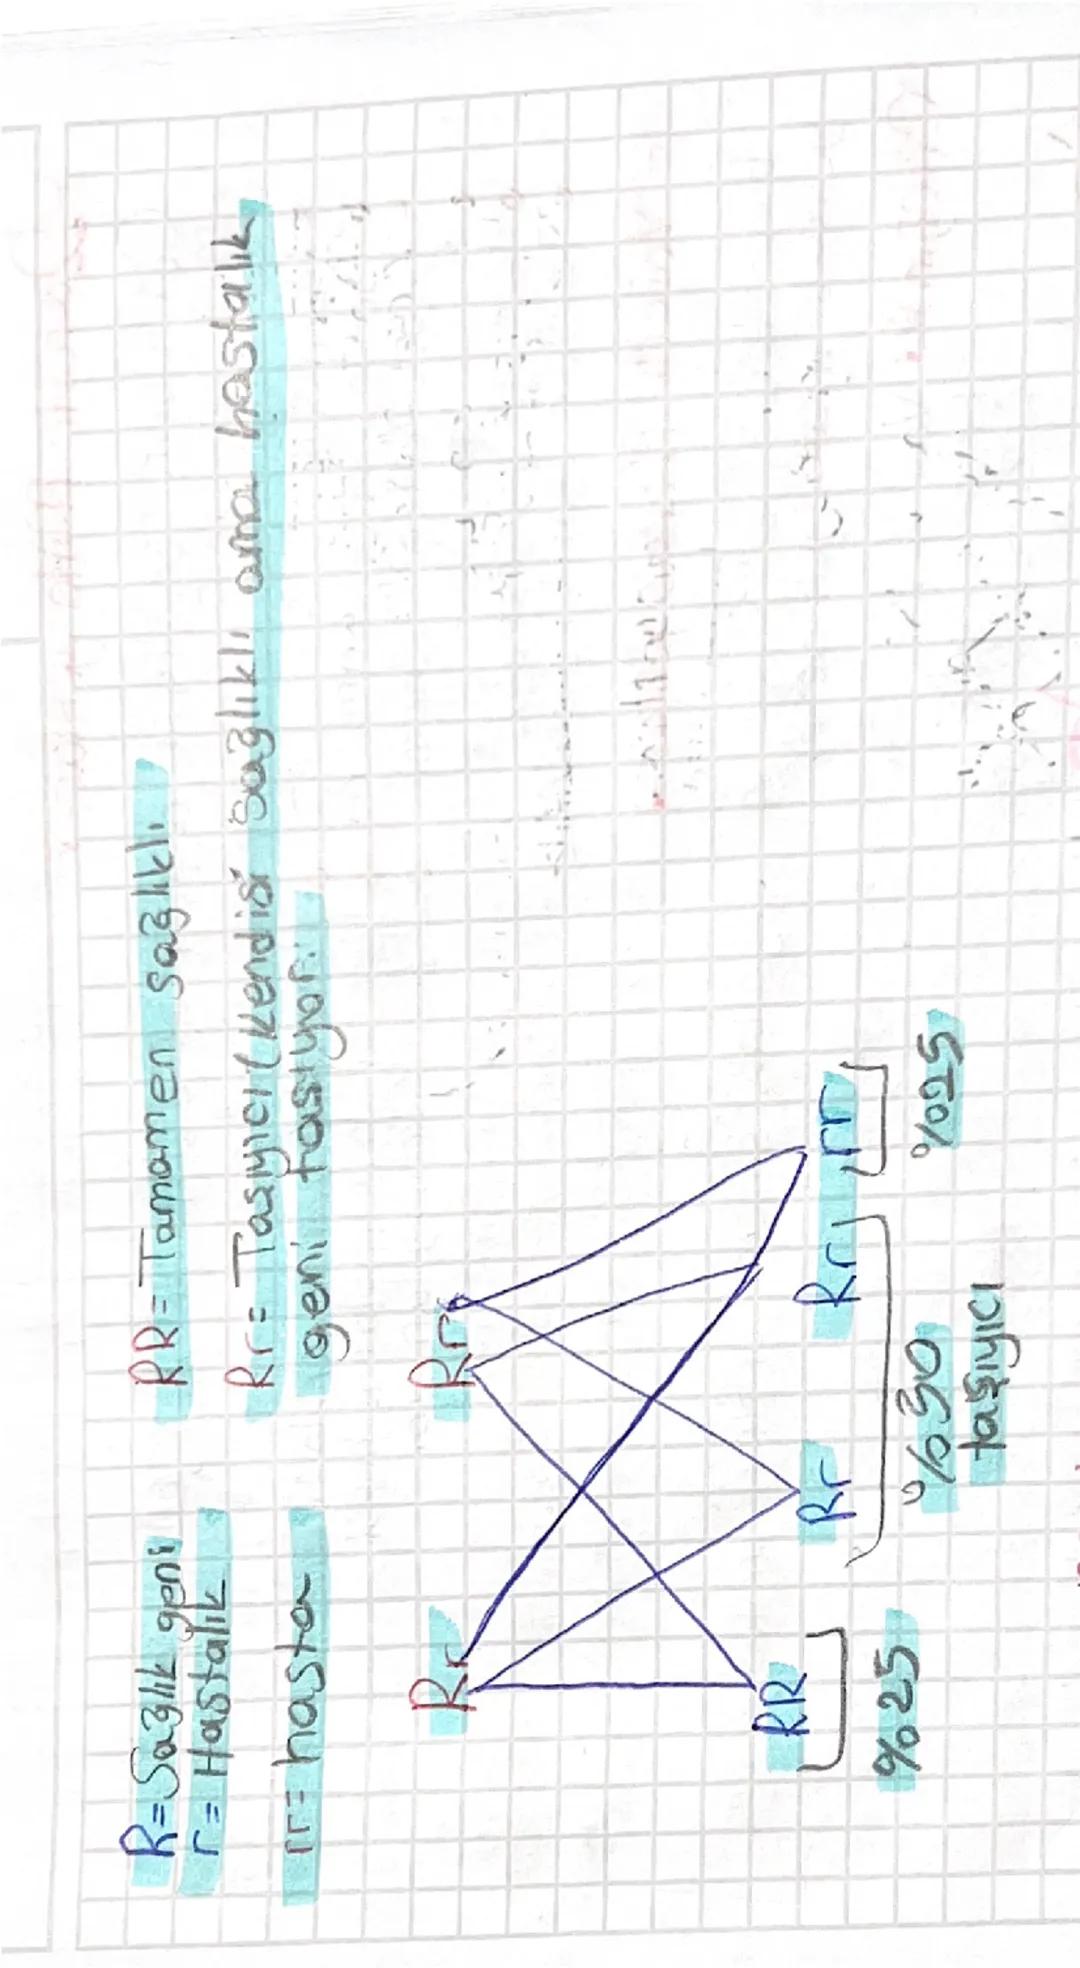 R=Sağlık geni
r=Hastalık
rr=hasta
RR=Tamamen sağlıklı
Rr=Taşıyıcı(kendisi sağlıklı ama hastalık
geni taşıyor.
Rr Rr
RR Rr Rr rr
%25 %030 %025
taşıyıcı